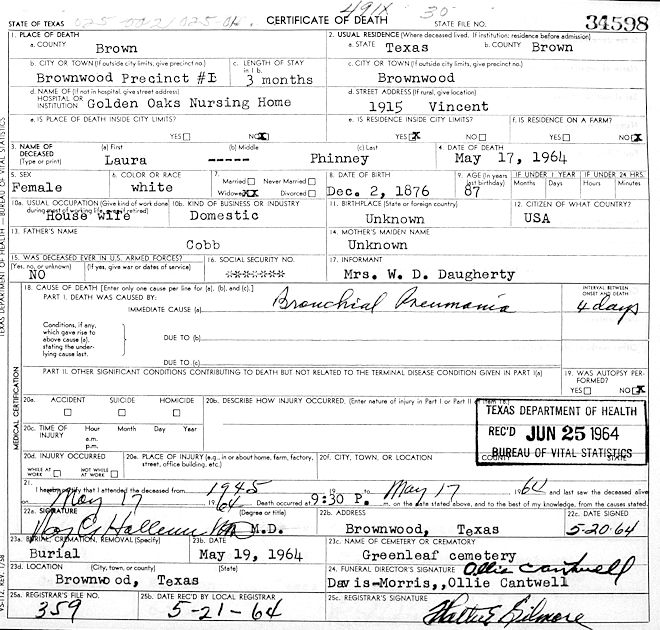 STATE OF TEXAS
CERTIFICATE OF DEATH
491X 30
STATE FILE NO.
34598
1. PLACE OF DEATH
a. COUNTY
Brown
2. USUAL RESIDENCE (Where deceased lived. If institution: residence before admission)
a. STATE Texas b. COUNTY Brown
b. CITY OR TOWN (If outside city limits, give precinct no.)
Brownwood Precinct #I
c. LENGTH OF STAY in 1 b.
3 months
c. CITY OR TOWN (If outside city limits, give precinct no.)
Brownwood
d. NAME OF (If not in hospital, give street address)
HOSPITAL OR
INSTITUTION Golden Oaks Nursing Home
d. STREET ADDRESS (If rural, give location)
1915 Vincent
e. IS PLACE OF DEATH INSIDE CITY LIMITS?
YES NO X
e. IS RESIDENCE INSIDE CITY LIMITS?
YES X NO
f. IS RESIDENCE ON A FARM?
YES NO X
3. NAME OF DECEASED (Type or print)
(a) First (b) Middle (c) Last
Laura ----- Phinney
4. DATE OF DEATH
May 17, 1964
5. SEX
Female
6. COLOR OR RACE
white
7. Married Never Married
Widowed XX Divorced
8. DATE OF BIRTH
Dec. 2, 1876
9. AGE (In years last birthday)
87
IF UNDER 1 YEAR
Months Days
IF UNDER 24 HRS.
Hours Minutes
10a. USUAL OCCUPATION (Give kind of work done during most of working life, even if retired)
House wife
10b. KIND OF BUSINESS OR INDUSTRY
Domestic
11. BIRTHPLACE (State or foreign country)
Unknown
12. CITIZEN OF WHAT COUNTRY?
USA
13. FATHER'S NAME
Cobb
14. MOTHER'S MAIDEN NAME
Unknown
15. WAS DECEASED EVER IN U.S. ARMED FORCES?
(Yes, no, or unknown) (If yes, give war or dates of service)
NO
16. SOCIAL SECURITY NO.
*******
17. INFORMANT
Mrs. W. D. Daugherty
18. CAUSE OF DEATH [Enter only one cause per line for (a), (b), and (c).]
PART I. DEATH WAS CAUSED BY:
IMMEDIATE CAUSE (a) Bronchial Pneumonia
INTERVAL BETWEEN ONSET AND DEATH
4 days
Conditions, if any,
which gave rise to
above cause (a),
stating the under-
lying cause last.
DUE TO (b)
DUE TO (c)
PART II. OTHER SIGNIFICANT CONDITIONS CONTRIBUTING TO DEATH BUT NOT RELATED TO THE TERMINAL DISEASE CONDITION GIVEN IN PART I(a)
19. WAS AUTOPSY PERFORMED?
YES NO X
20a. ACCIDENT SUICIDE HOMICIDE
20b. DESCRIBE HOW INJURY OCCURRED. (Enter nature of injury in Part I or Part II of item 18.)
20c. TIME OF INJURY
Hour Month Day Year
a.m.
p.m.
TEXAS DEPARTMENT OF HEALTH
REC'D JUN 25 1964
BUREAU OF VITAL STATISTICS
20d. INJURY OCCURRED
WHILE AT WORK NOT WHILE AT WORK
20e. PLACE OF INJURY (e.g., in or about home, farm, factory, street, office building, etc.)
20f. CITY, TOWN, OR LOCATION COUNTY STATE
21. I hereby certify that I attended the deceased from 1945 19 to May 17 1964 and last saw the deceased alive
on May 17 1964 Death occurred at 9:30 P. m. on the date stated above, and to the best of my knowledge, from the causes stated.
22a. SIGNATURE (Degree or title)
M.D.
22b. ADDRESS
Brownwood, Texas
22c. DATE SIGNED
5-20-64
23a. BURIAL, CREMATION, REMOVAL (Specify)
Burial
23b. DATE
May 19, 1964
23c. NAME OF CEMETERY OR CREMATORY
Greenleaf cemetery
23d. LOCATION (City, town, or county) (State)
Brownwood, Texas
24. FUNERAL DIRECTOR'S SIGNATURE Ollie Cantwell
Davis-Morris,,Ollie Cantwell
25a. REGISTRAR'S FILE NO.
359
25b. DATE REC'D BY LOCAL REGISTRAR
5-21-64
25c. REGISTRAR'S SIGNATURE
Hattie E Gilmore
TEXAS DEPARTMENT OF HEALTH — BUREAU OF VITAL STATISTICS
MEDICAL CERTIFICATION
VS-112, REV. 1/58